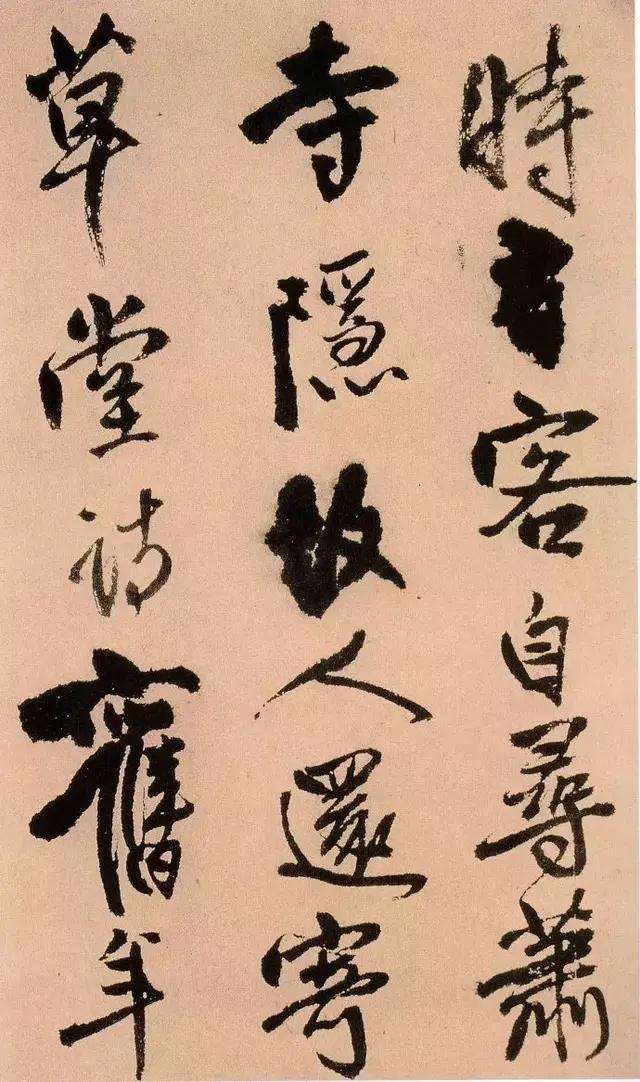 時客自尋蕭
寺隱故人還寄
草堂詩舊年